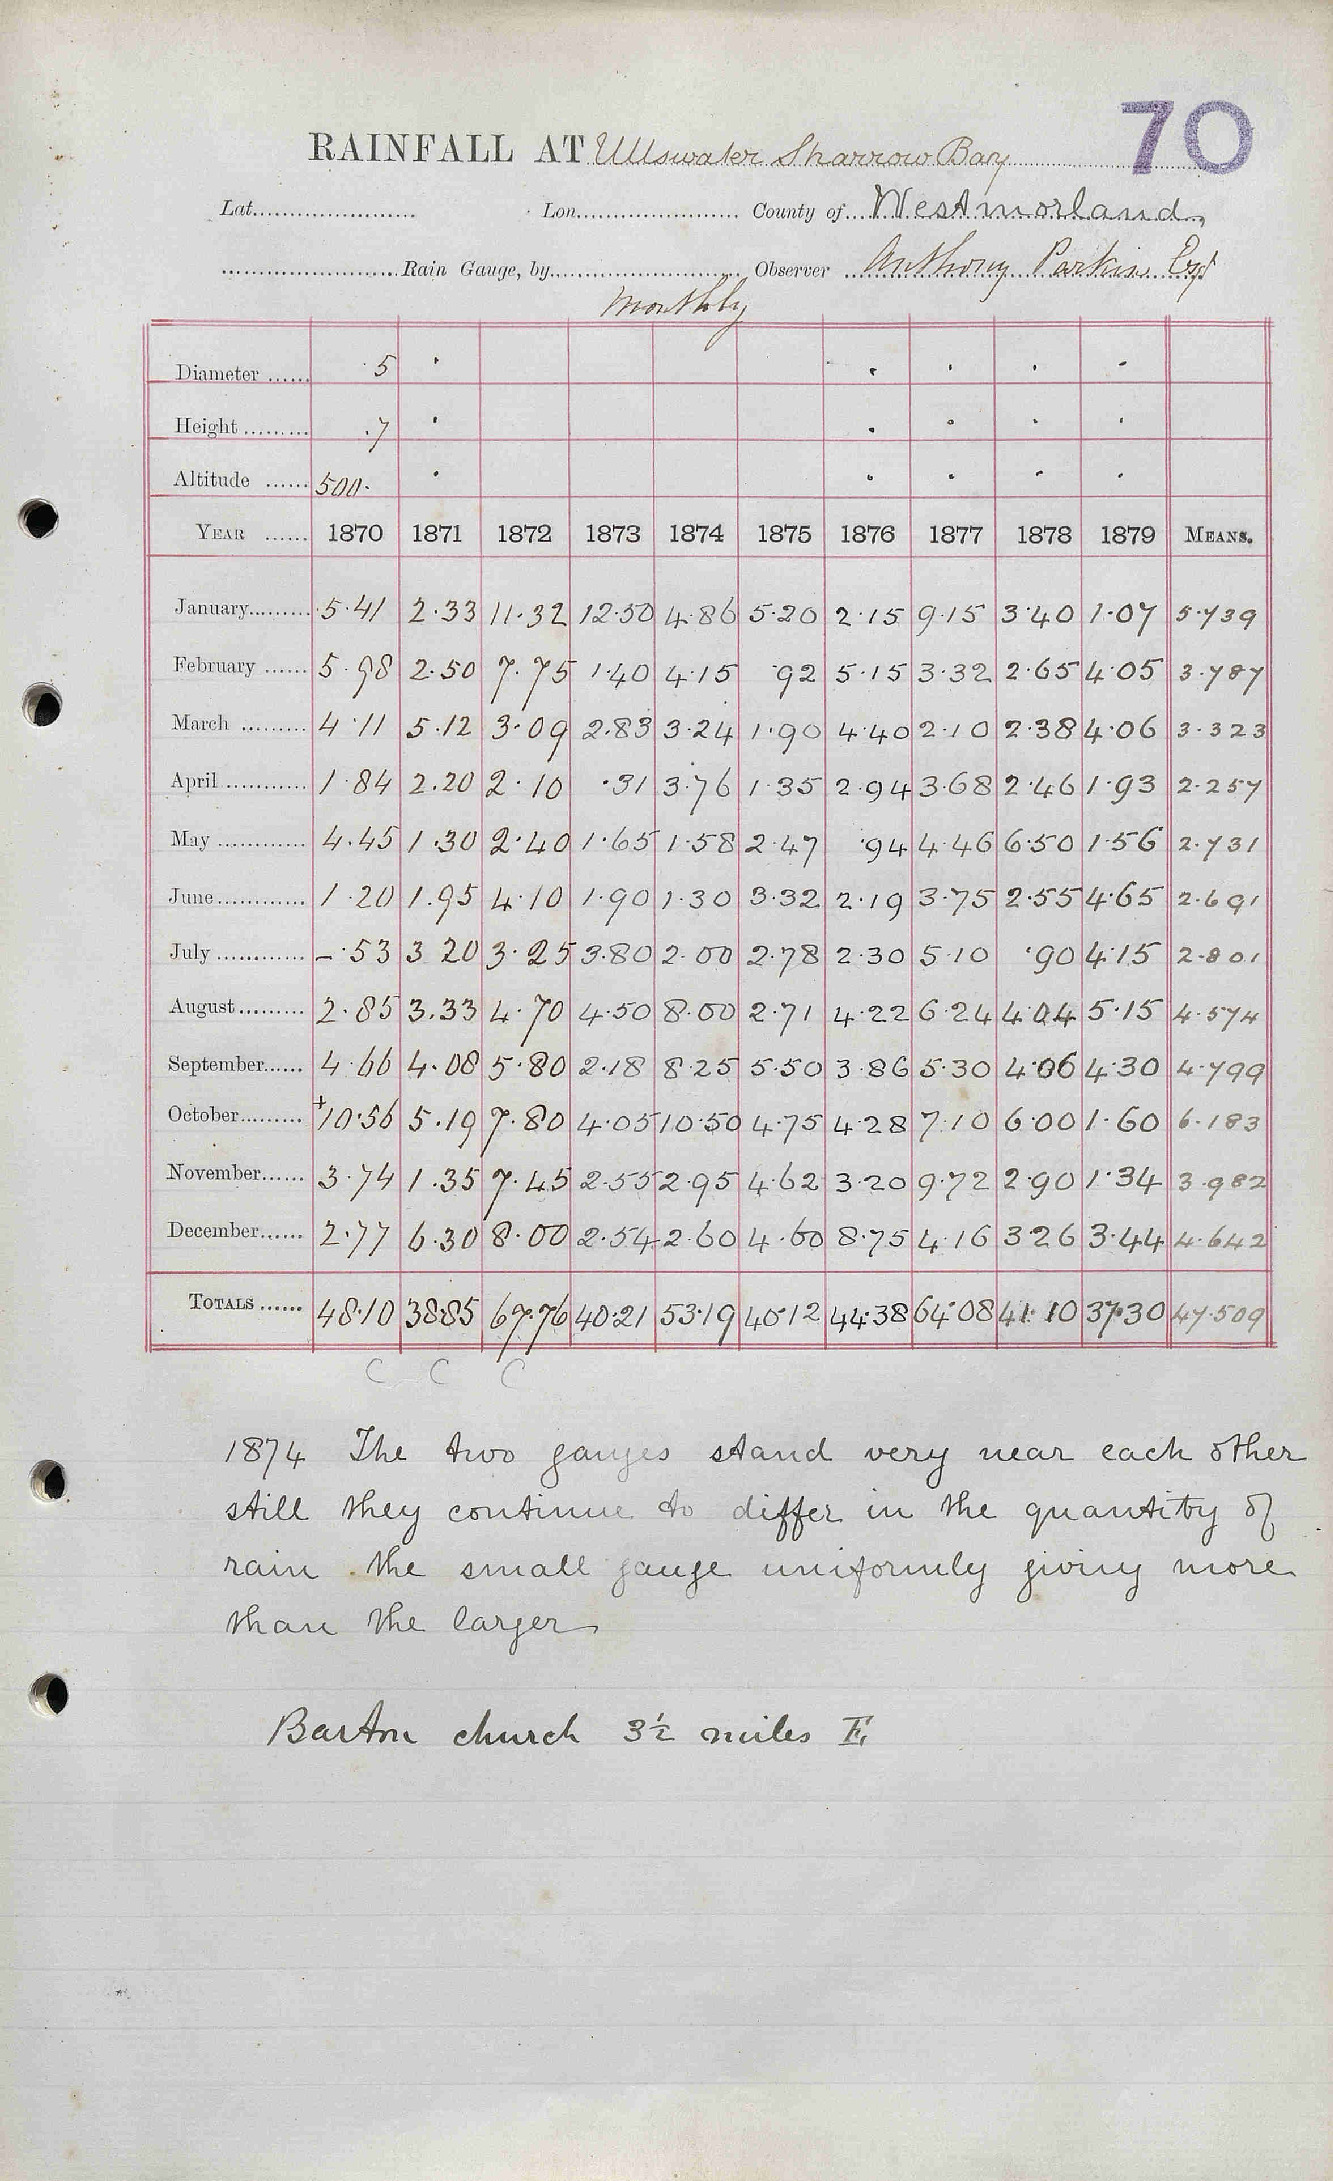 70
RAINFALL AT Ullswater Sharrow Bay
Lat. Lon. County of Westmorland
Rain Gauge, by Observer Anthony Parkin Esq
Monthly
Diameter 5
Height .7
Altitude 500
YEAR 1870 1871 1872 1873 1874 1875 1876 1877 1878 1879 MEANS.
January 5.41 2.33 11.32 12.50 4.86 5.20 2.15 9.15 3.40 1.07 5.739
February 5.98 2.50 7.75 1.40 4.15 .92 5.15 3.32 2.65 4.05 3.787
March 4.11 5.12 3.09 2.83 3.24 1.90 4.40 2.10 2.38 4.06 3.323
April 1.84 2.20 2.10 .31 3.76 1.35 2.94 3.68 2.46 1.93 2.257
May 4.45 1.30 2.40 1.65 1.58 2.47 .94 4.46 6.50 1.56 2.731
June 1.20 1.95 4.10 1.90 1.30 3.32 2.19 3.75 2.55 4.65 2.691
July – .53 3 20 3.25 3.80 2.00 2.78 2.30 5.10 .90 4.15 2.801
August 2.85 3.33 4.70 4.50 8.00 2.71 4.22 6.24 4.04 5.15 4.574
September 4.66 4.08 5.80 2.18 8.25 5.50 3.86 5.30 4.06 4.30 4.799
October +10.56 5.19 7.80 4.05 10.50 4.75 4.28 7.10 6.00 1.60 6.183
November 3.74 1.35 7.45 2.55 2.95 4.62 3.20 9.72 2.90 1.34 3.982
December 2.77 6.30 8.00 2.54 2.60 4.60 8.75 4.16 3.26 3.44 4.642
TOTALS 48.10 38.85 67.76 40.21 53.19 40.12 44.38 64.08 41.10 37.30 47.509
C C C
1874 The two gauges stand very near each other
still they continue to differ in the quantity of
rain the small gauge uniformly giving more
than the larger
Barton church 3½ miles E